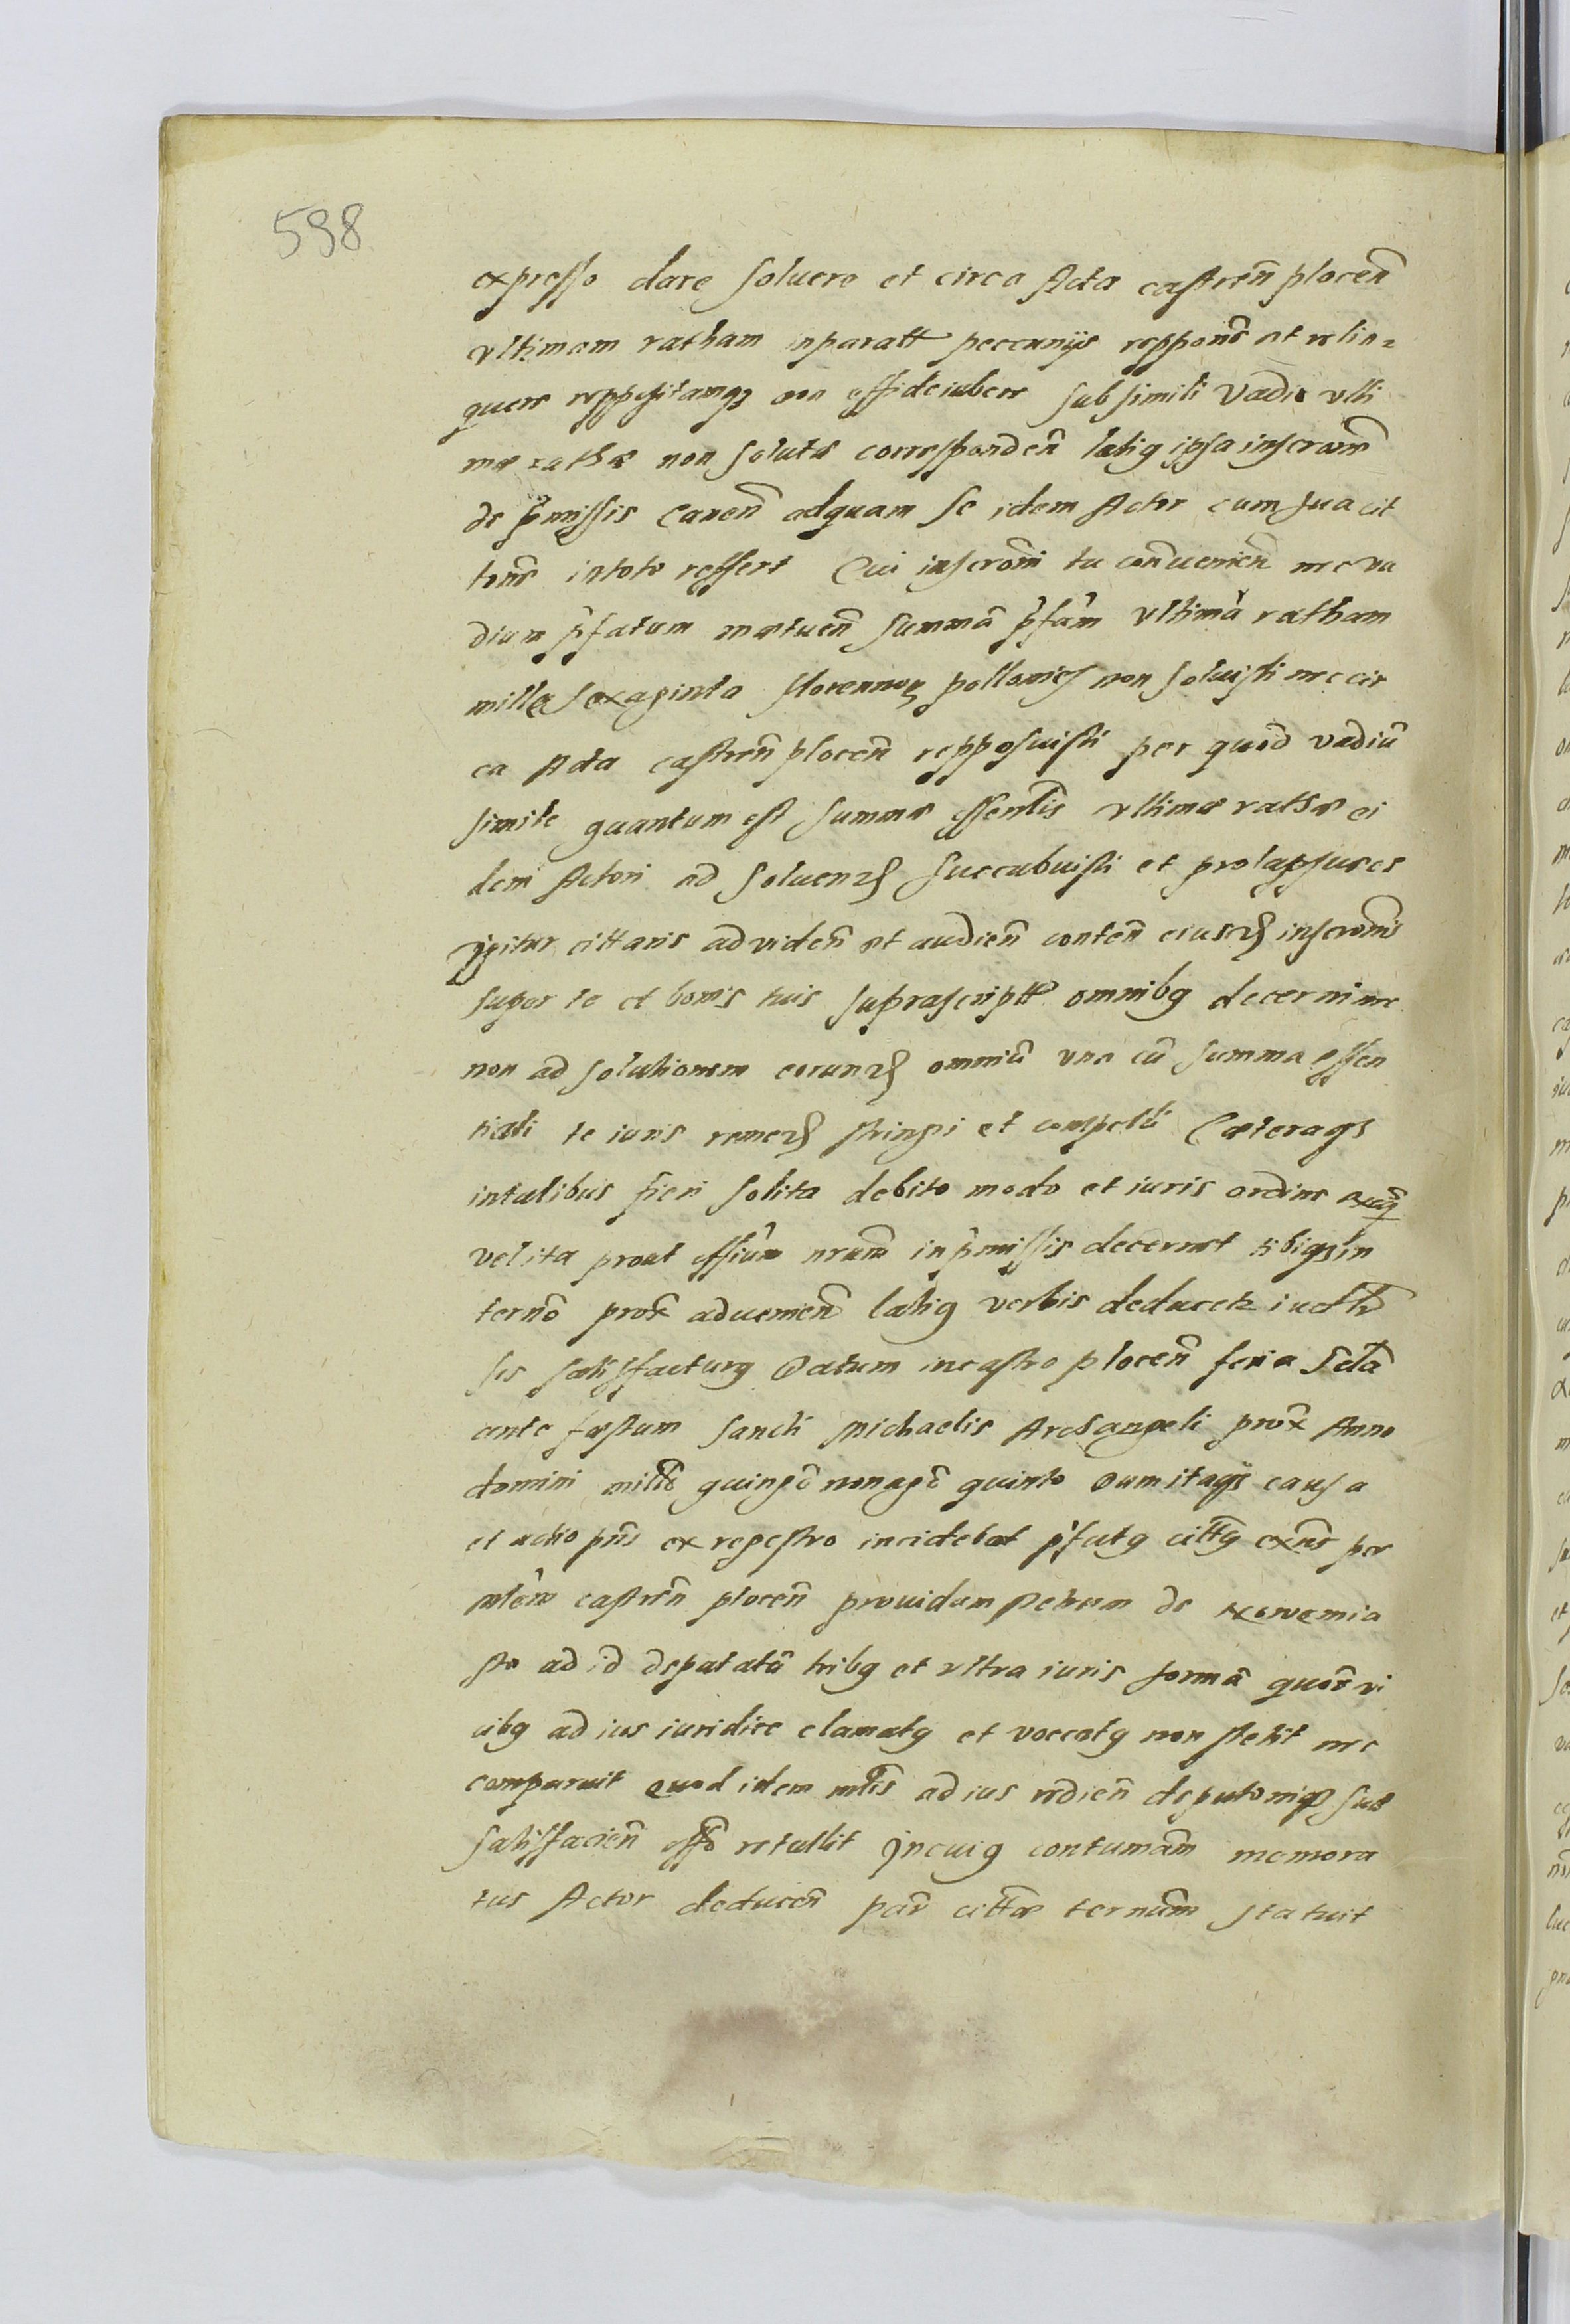 598
expresso dare soluere et circa Acta castreñ ploceñ
vltimam ratham inparatt peccunijs reppone͂ et relin=
quere reppositamq3 non effideiubere sub simili Vadio vlti
mæ rathæ non solutæ correspondeñ latig ipsa inscrom͂
de p̂missis Caneñ adquam se idem Actor cum sua cit
tone͂ intoto reffert Cui inscromi͂ tu coñuenieñ nec va
dium p̂fatum mætueñ summã p̂fam͂ vltimã ratham
mille sexaginta florennoR pollonics non soluisti nec cir
ca Acta castreñ ploceñ repposuisti per quod vadiũ
simile quantum est summæ essenlis͂ vltimæ rathæ ei
dem Actori ad soluend succubuisti et prolapsus es
jgitur cittaris ad videñ et audieñ conteñ eiusd inscromis͂
super te et bonis tuis suprascriptt omnibg decerni nec
non ad solutionem eorund omniũ vna cũ summa essen
tiali te iuris remed stringi et compelli Cæteraq3
intalibus fieri solita debito modo et iuris ordine exeq͂
vel ita prout offium͂ nrum͂ in p̂missis decernet tibiq3 in
terno͂ prox͂ adueniеñ latig verbis deducetz iudtr͂
ses satisfacturg Datum incastro ploceñ feria Scda͂
ante fæstum sancti Michaelis Archangeli prox͂ Anno
domini milio͂ quingo͂ nonago͂ quinto Dum itaq3 causa
et actio pñs ex regestro incidebat p̂fatg cittg exñs per
mlem͂ castreñ ploceñ prouidum Petrum de
sto ad id deputatũ tribg et vltra iuris formã quor͂ vi
cibg ad ius iuridice clamatg et voccatg non stetit nec
comparuit Quod idem mlis͂ ad ius rediеñ deputoniq3 suæ
satisfacieñ offo͂ retullit Jncuig contumam͂ memora
tus Actor deduceñ par͂ cittæ ternum͂ statuit